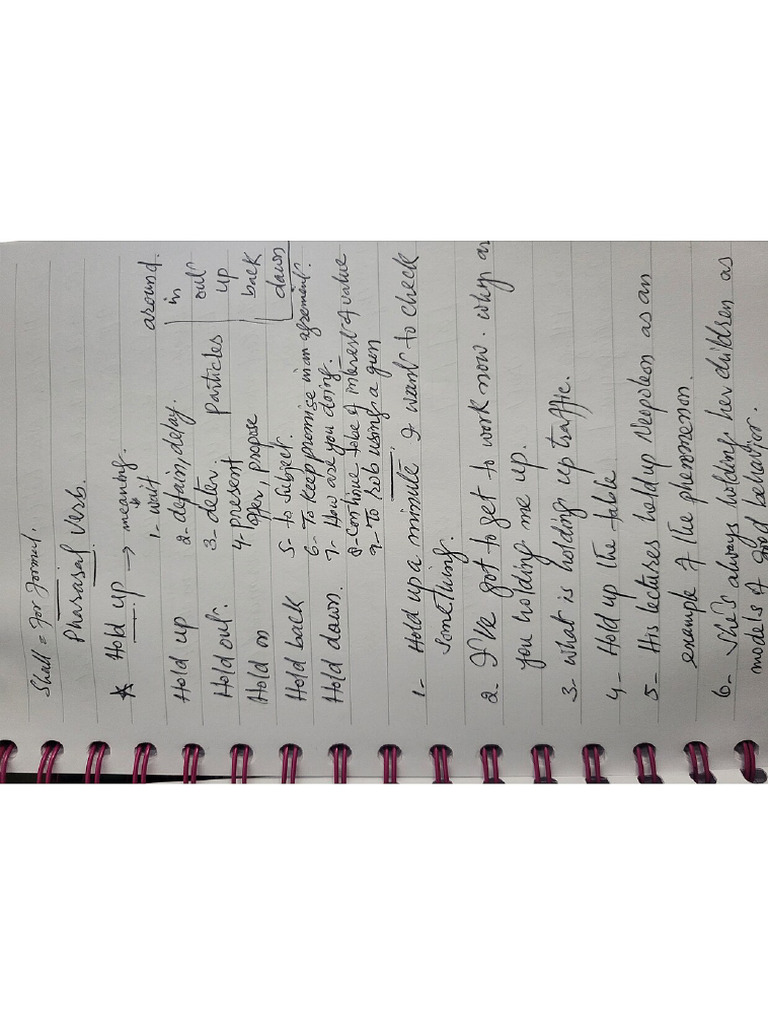 Shall = For Formul.
Pharasal Verb.
* Hold up → meaning. around.
1- wait
Hold up 2- detain, delay. in
Hold out. 3- deter. Particles out
Hold on 4- present up
offer, propose back
Hold back 5- to subject. down
6- To keep promise in an agrement.
Hold down. 7- How are you doing.
8- continue tobe of interest of value
9- To rob using a gun
1- Hold up a minute I want to check
something.
2- I've got to get to work now. why ar
you holding me up.
3- what is holding up traffic.
4- Hold up the table
5- His lectures hold up Neopoleon as an
example of the phenomenon.
6- She's always holding her children as
models of good behavior.